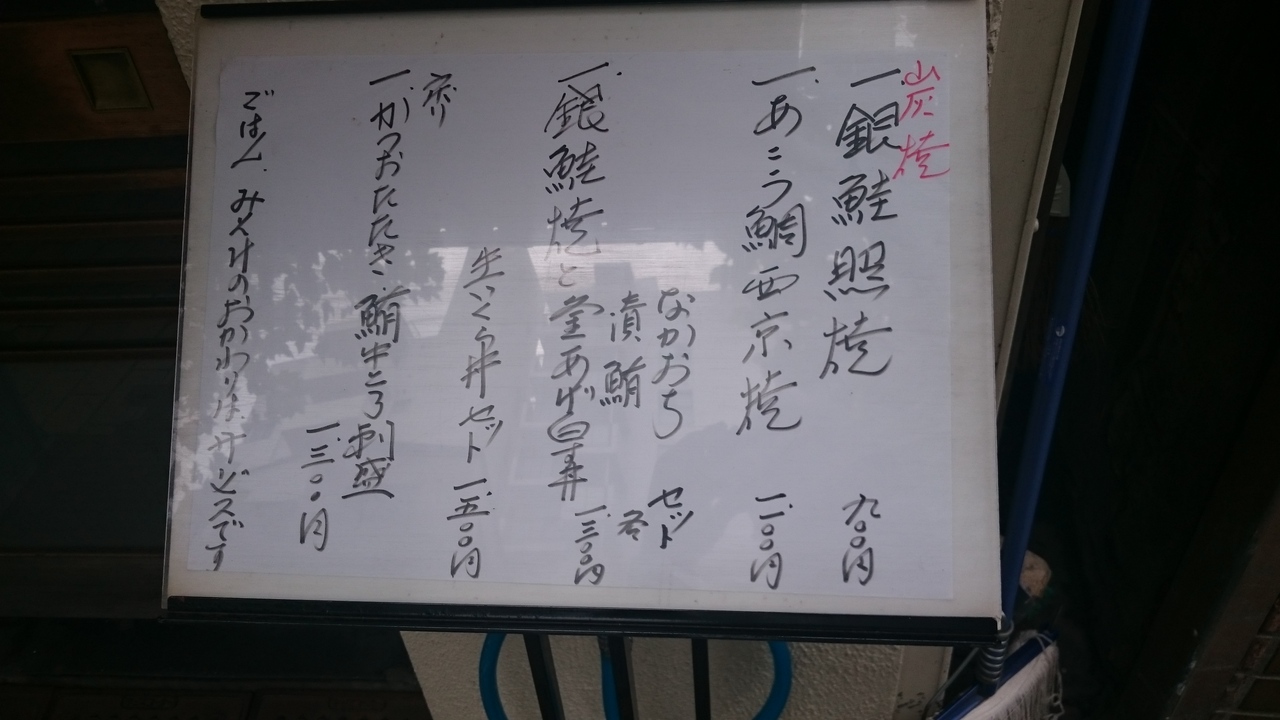 炭焼
一、銀鮭照焼 九〇〇円
一、あこう鯛西京焼 一、一〇〇円
一、銀鮭焼と
なかおち
漬鮪
釜あげ白す丼
セット
各一、三〇〇円
生いくら丼セット 一、五〇〇円
一、かつおたたき、鮪中とろ刺盛
一、三〇〇円
ごはん、みそ汁のおかわりはサービスです